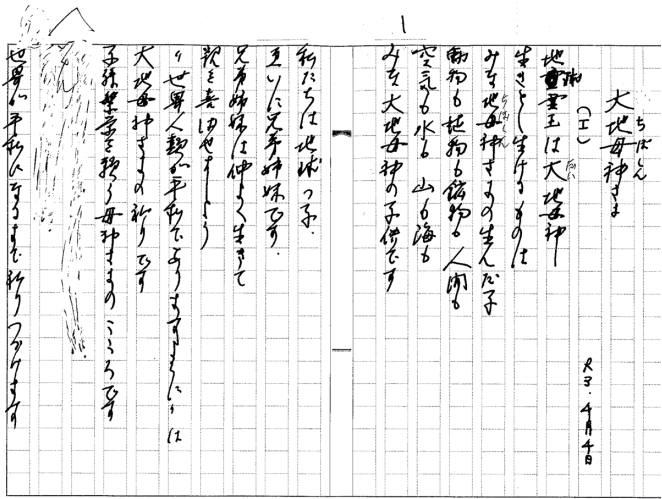 1
大地母神さま
ちぼしん
(エ)
R3.4月4日
地球霊王は大地母神
生きとし生けるものは
みな地母神さまの生んだ子
動物も植物も鉱物も人間も
空気も水も山も海も
みな大地母神の子供です
私たちは地球っ子.
互いに兄弟姉妹です.
兄弟姉妹は仲よく生きて
親を喜ばせましょう
〃世界人類が平和でありますように〃は
大地母神さまの祈りです
子孫繁栄を願う母神さまのこころです
世界が平和になるまで祈りつづけます